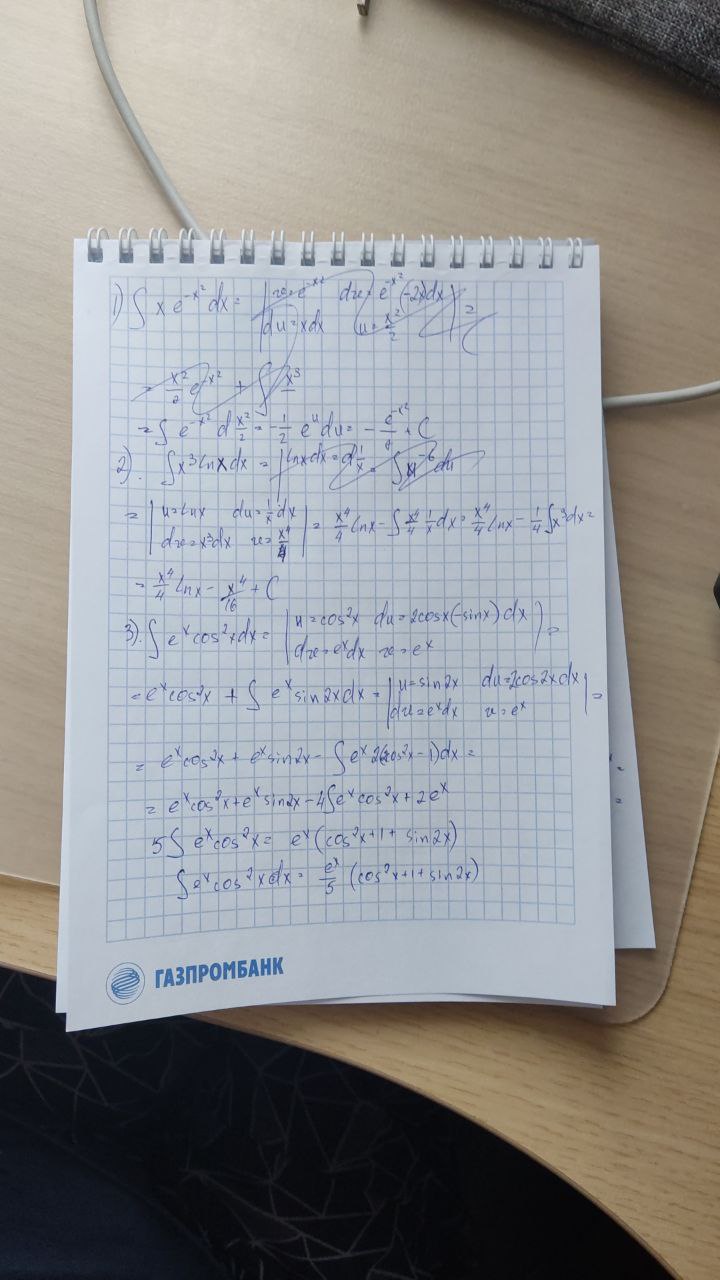 1) ∫ x e^{-x²} dx = | v = e^{-x²} dv = e^{-x²}(-2x)dx | =
| du = xdx u = x²/2 |
= x²/2 e^{-x²} + ∫ x³
= ∫ e^{-x²} d x²/2 = -1/2 e^u du = - e^{-x²}/ + C
2). ∫ x³ ln x dx = | ln x dx = d 1/x = ∫ u^{-6} du
= | u = ln x du = 1/x dx | = x⁴/4 ln x - ∫ x⁴/4 1/x dx = x⁴/4 ln x - 1/4 ∫ x³ dx =
| dv = x³dx v = x⁴/4 |
= x⁴/4 ln x - x⁴/16 + C
3). ∫ e^x cos²x dx = | u = cos²x du = 2cosx(-sinx)dx | =
| dv = e^x dx v = e^x |
= e^x cos²x + ∫ e^x sin2x dx = | u = sin2x du = 2cos2x dx | =
| dv = e^x dx v = e^x |
= e^x cos²x + e^x sin2x - ∫ e^x 2(2cos²x - 1)dx =
= e^x cos²x + e^x sin2x - 4∫ e^x cos²x + 2e^x
5∫ e^x cos²x = e^x (cos²x + 1 + sin2x)
∫ e^x cos²x dx = e^x/5 (cos²x + 1 + sin2x)
ГАЗПРОМБАНК